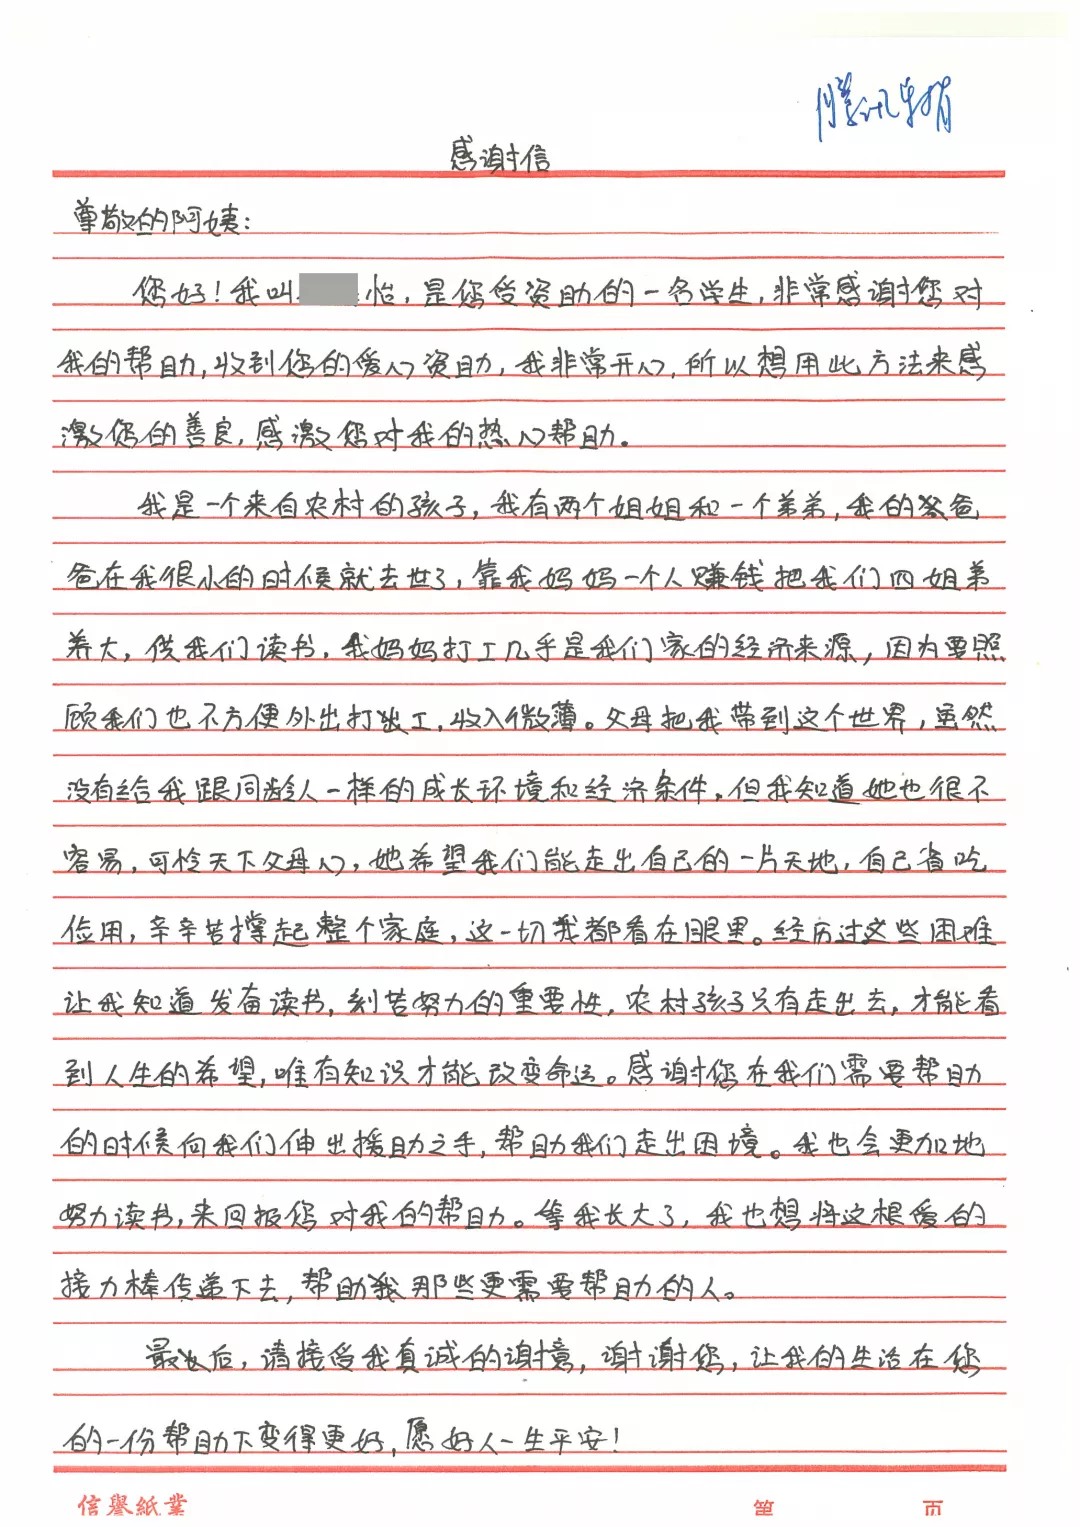 腾讯专捐
感谢信
尊敬的阿姨:
您好!我叫 怡,是您受资助的一名学生,非常感谢您对
我的帮助,收到您的爱心资助,我非常开心,所以想用此方法来感
激您的善良,感激您对我的热心帮助。
我是一个来自农村的孩子,我有两个姐姐和一个弟弟,我的爸
爸在我很小的时候就去世了,靠我妈妈一个人赚钱把我们四姐弟
养大,供我们读书,我妈妈打工几乎是我们家的经济来源,因为要照
顾我们也不方便外出打工,收入微薄。父母把我带到这个世界,虽然
没有给我跟同龄人一样的成长环境和经济条件,但我知道她也很不
容易,可怜天下父母心,她希望我们能走出自己的一片天地,自己省吃
俭用,辛辛苦撑起整个家庭,这一切我都看在眼里。经历过这些困难
让我知道发奋读书,刻苦努力的重要性,农村孩子只有走出去,才能看
到人生的希望,唯有知识才能改变命运。感谢您在我们需要帮助
的时候向我们伸出援助之手,帮助我们走出困境。我也会更加地
努力读书,来回报您对我的帮助。等我长大了,我也想将这根爱的
接力棒传递下去,帮助我那些更需要帮助的人。
最后,请接受我真诚的谢意,谢谢您,让我的生活在您
的一份帮助下变得更好,愿好人一生平安!
信誉紙業 第 页